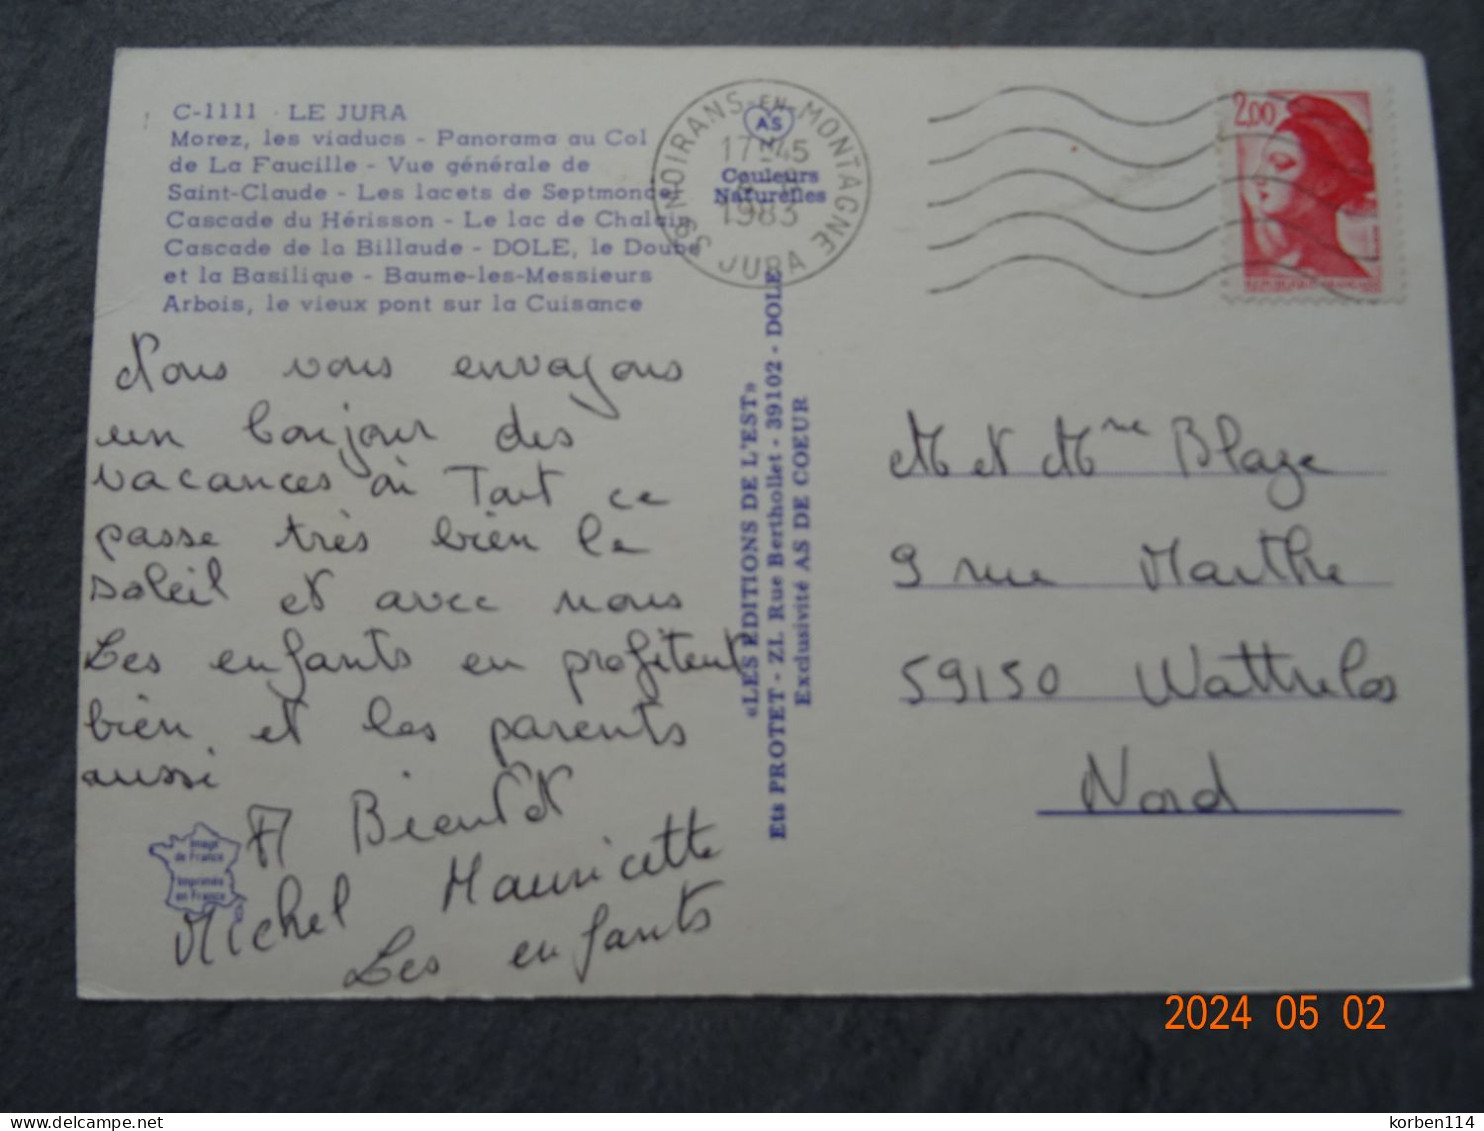 C-1111 · LE JURA
Morez, les viaducs - Panorama au Col
de La Faucille - Vue générale de
Saint-Claude - Les lacets de Septmoncel
Cascade du Hérisson - Le lac de Chalain
Cascade de la Billaude - DOLE, le Doubs
et la Basilique - Baume-les-Messieurs
Arbois, le vieux pont sur la Cuisance
Nous vous envoyons
un bonjour des
vacances où Tout ce
passe très bien le
soleil et avec nous
Les enfants en profitent
bien et les parents
aussi
A Bientôt
Michel Mauricette
Les enfants
Image
de France
Imprimée
en France
39 MOIRANS-EN-MONTAGNE
JURA
17H45
1983
AS
Couleurs
Naturelles
«LES EDITIONS DE L'EST»
Ets PROTET - ZI. Rue Berthollet - 39102 - DOLE
Exclusivité AS DE COEUR
2,00
M et Mme Blaze
9 rue Marthe
59150 Wattrelos
Nord
2024 05 02
korben114